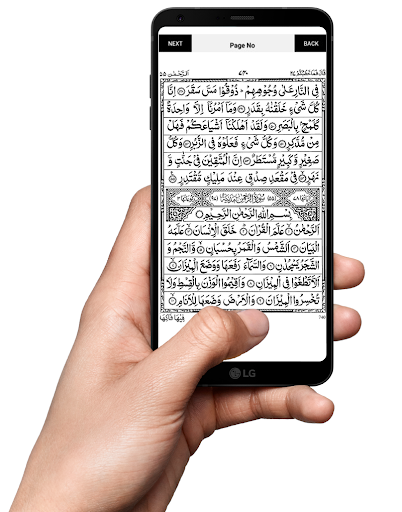 NEXT Page No BACK
فِي النَّارِ عَلٰى وُجُوْهِهِمْ ذُوْقُوْا مَسَّ سَقَرَ ۝ اِنَّا
كُلَّ شَيْءٍ خَلَقْنٰهُ بِقَدَرٍ ۝ وَمَآ اَمْرُنَآ اِلَّا وَاحِدَةٌ
كَلَمْحٍۭ بِالْبَصَرِ ۝ وَلَقَدْ اَهْلَكْنَآ اَشْيَاعَكُمْ فَهَلْ
مِنْ مُّدَّكِرٍ ۝ وَكُلُّ شَيْءٍ فَعَلُوْهُ فِي الزُّبُرِ ۝ وَكُلُّ
صَغِيْرٍ وَّكَبِيْرٍ مُّسْتَطَرٌ ۝ اِنَّ الْمُتَّقِيْنَ فِيْ جَنّٰتٍ وَّ
نَهَرٍ ۝ فِيْ مَقْعَدِ صِدْقٍ عِنْدَ مَلِيْكٍ مُّقْتَدِرٍ ۝
بِسْمِ اللّٰهِ الرَّحْمٰنِ الرَّحِيْمِ
اَلرَّحْمٰنُ ۝ عَلَّمَ الْقُرْاٰنَ ۝ خَلَقَ الْاِنْسَانَ ۝ عَلَّمَهُ
الْبَيَانَ ۝ اَلشَّمْسُ وَالْقَمَرُ بِحُسْبَانٍ ۝ وَّالنَّجْمُ وَ
الشَّجَرُ يَسْجُدٰنِ ۝ وَالسَّمَآءَ رَفَعَهَا وَوَضَعَ الْمِيْزَانَ ۝
اَلَّا تَطْغَوْا فِي الْمِيْزَانِ ۝ وَاَقِيْمُوا الْوَزْنَ بِالْقِسْطِ وَلَا
تُخْسِرُوا الْمِيْزَانَ ۝ وَالْاَرْضَ وَضَعَهَا لِلْاَنَامِ ۝
LG